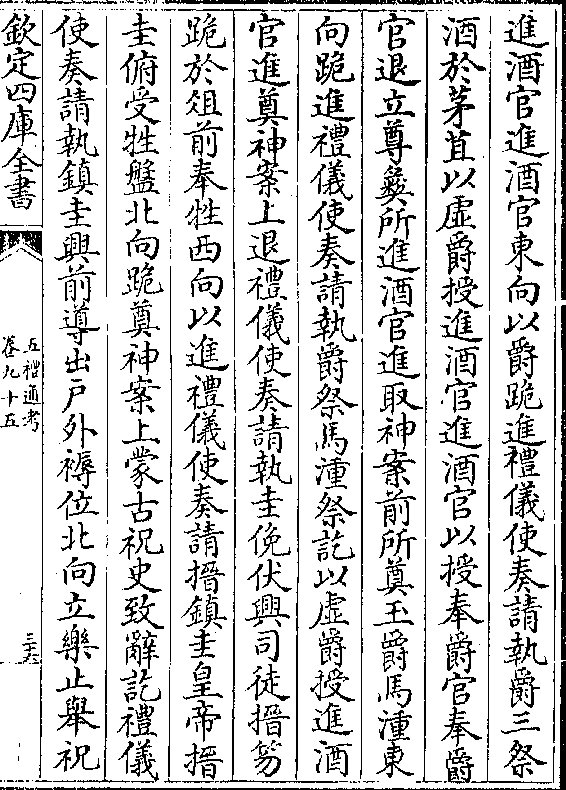 進酒官進酒官東向以爵跪進禮儀使奏請執爵三祭
酒於茅苴以虛爵授進酒官進酒官以授奉爵官奉爵
官退立尊彝所進酒官進取神案前所奠玉爵馬湩東
向跪進禮儀使奏請執爵祭馬湩祭訖以虛爵授進酒
官進奠神案上退禮儀使奏請執圭俛伏興司徒搢笏
跪於俎前奉牲西向以進禮儀使奏請搢鎮圭皇帝搢
圭俯受牲盤北向跪奠神案上蒙古祝史致辭訖禮儀
使奏請執鎮圭興前導出戶外褥位北向立樂止舉祝
欽定四庫全書
五禮通考
卷九十五
三六